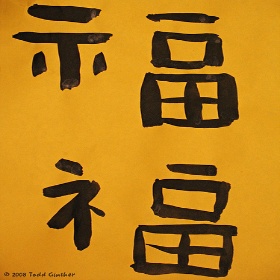 福
福
© 2008 Todd Ginther